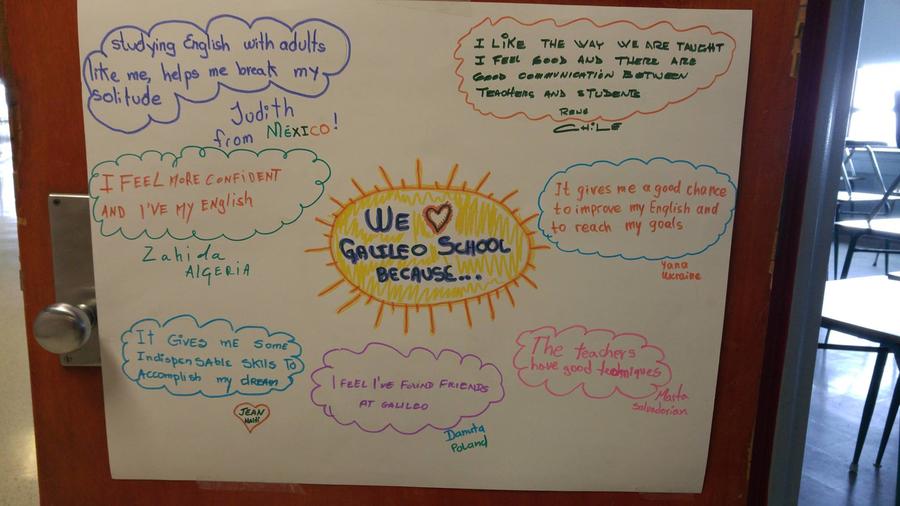 studying English with adults
like me, helps me break my
solitude
Judith
from MÉXICO!
I LIKE THE WAY WE ARE TAUGHT
I FEEL GOOD AND THERE ARE
GOOD COMMUNICATION BETWEEN
TEACHERS AND STUDENTS
RENE
CHILE
I FEEL MORE CONFIDENT
AND I'VE MY ENGLISH
Zahida
ALGERIA
WE ♡
GALILEO SCHOOL
BECAUSE...
It gives me a good chance
to improve my English and
to reach my goals
Yana
Ukraine
IT GIVES ME SOME
INDISPENSABLE SKILLS TO
ACCOMPLISH MY DREAM
JEAN
HAITI
I FEEL I'VE FOUND FRIENDS
AT GALILEO
Danuta
Poland
The teachers
have good techniques
Marta
Salvadorian